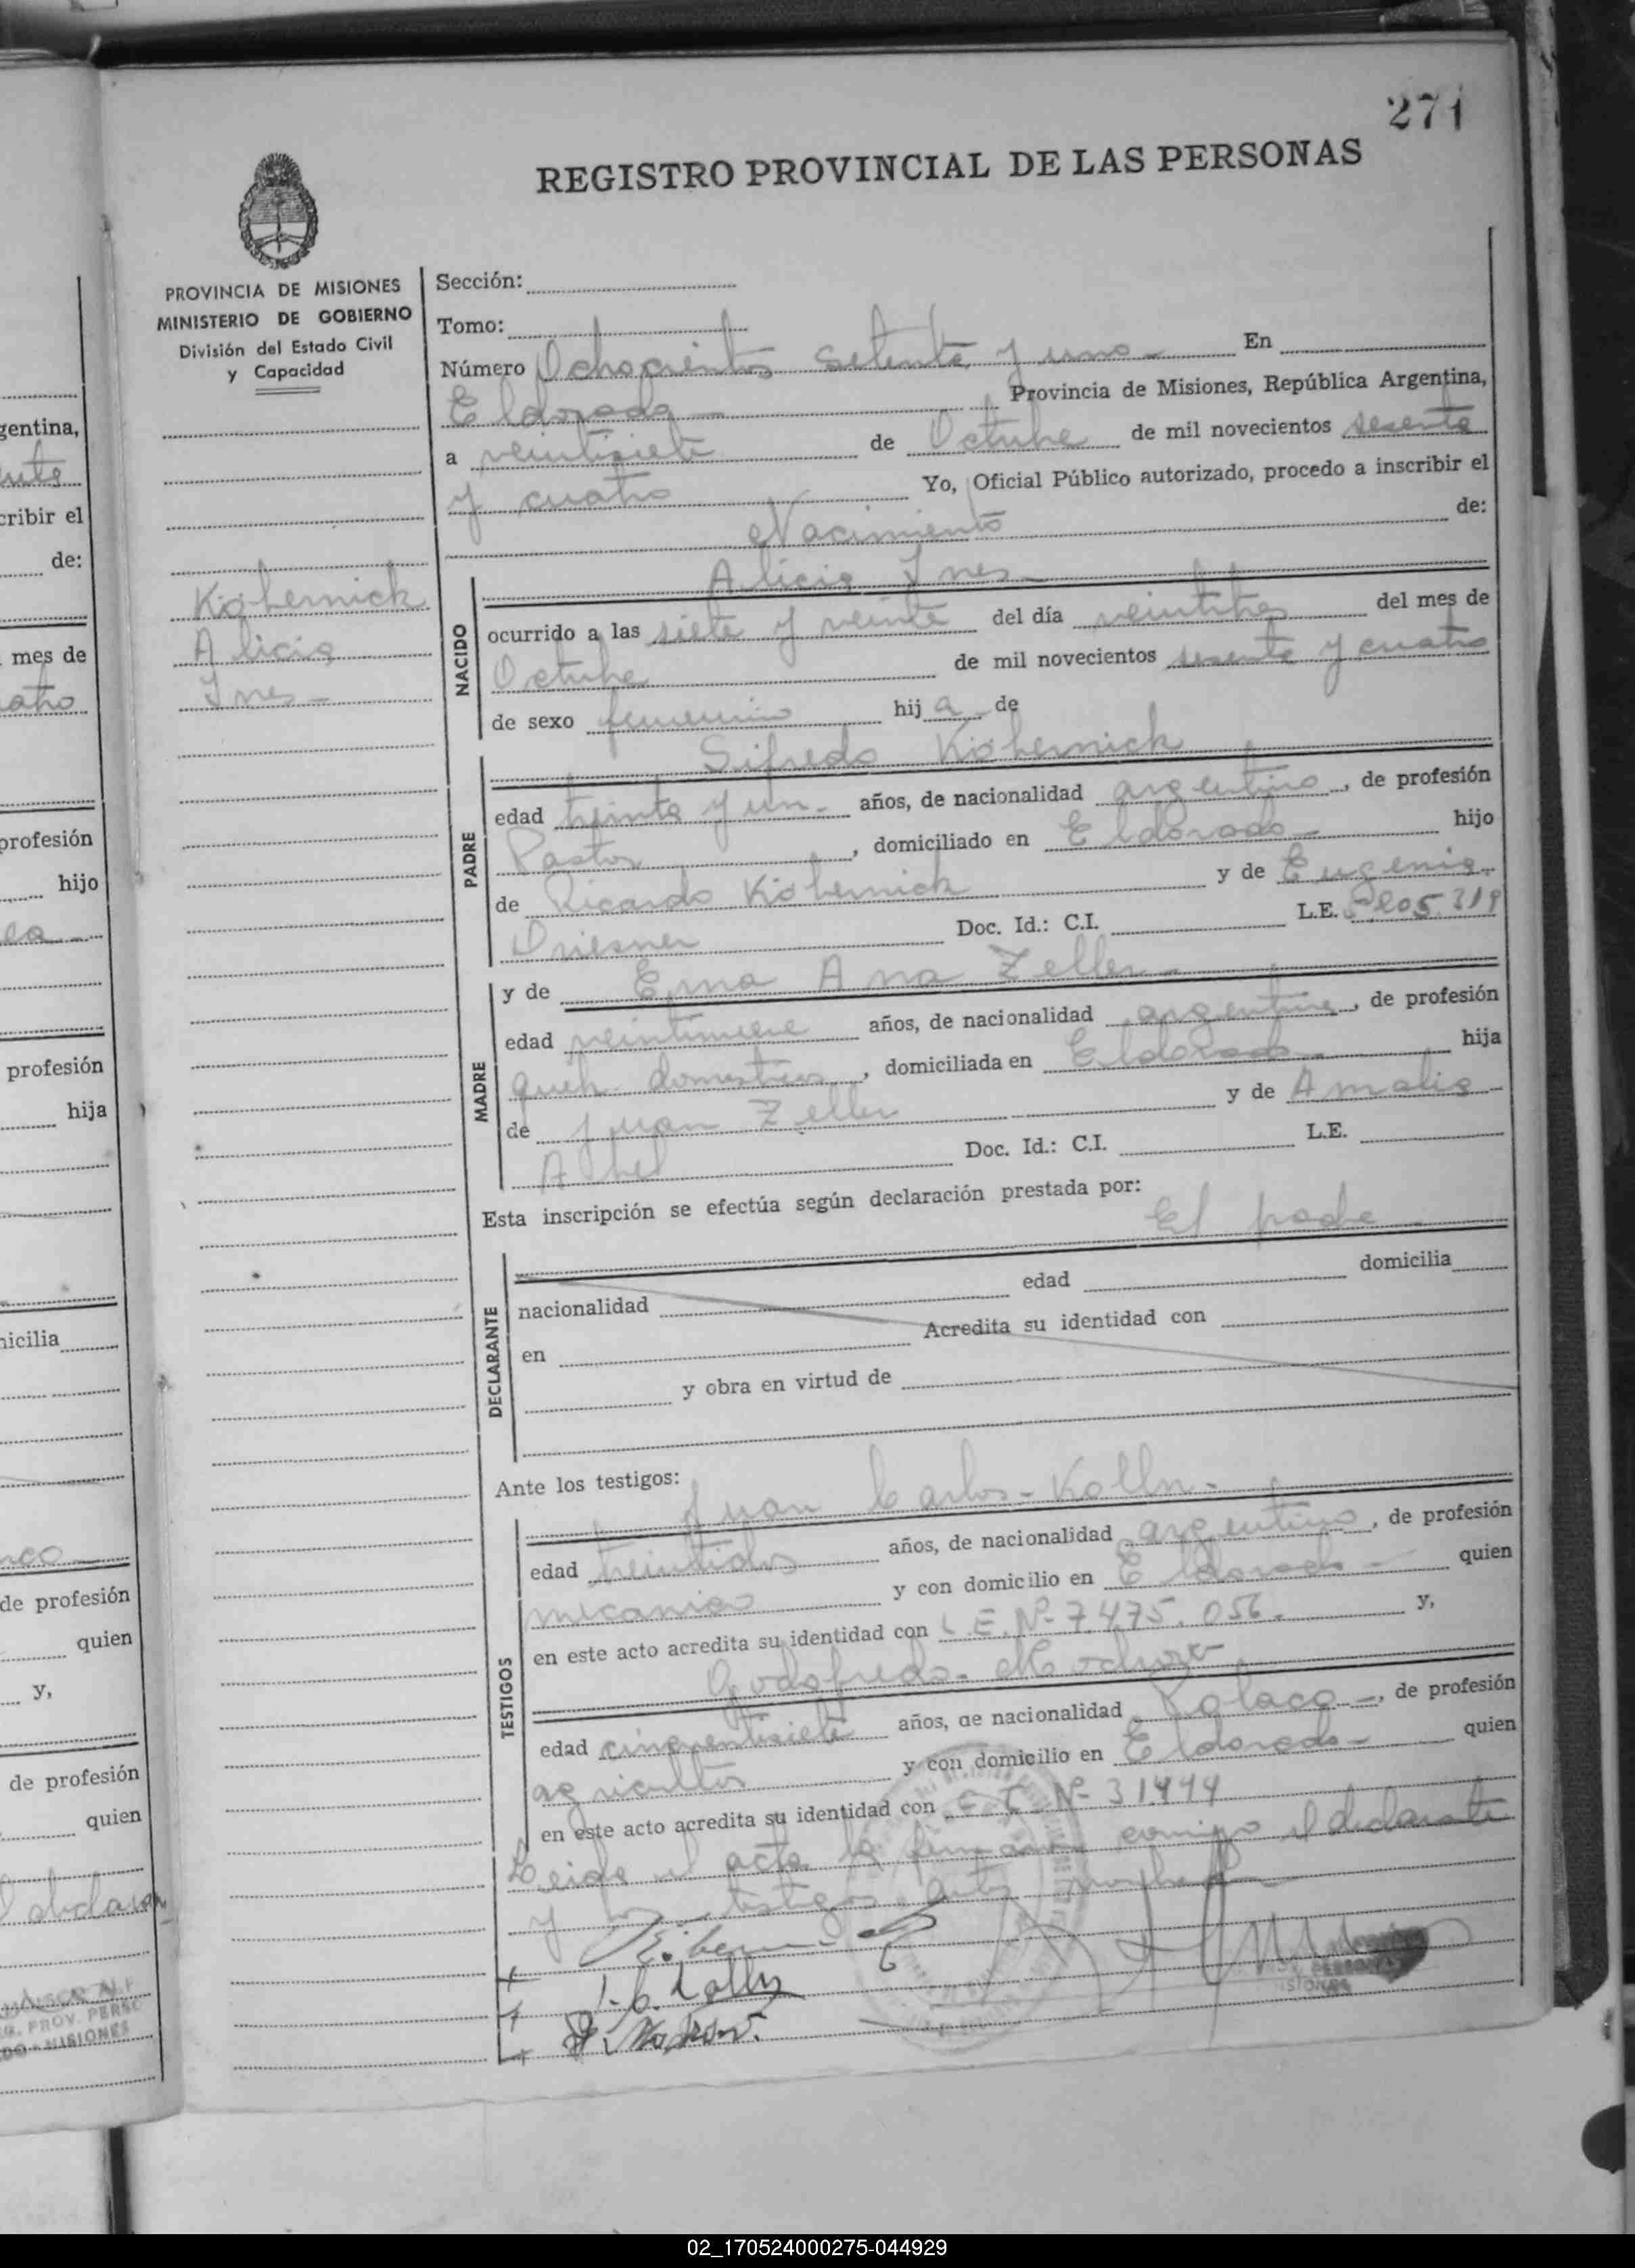 271
REGISTRO PROVINCIAL DE LAS PERSONAS
PROVINCIA DE MISIONES
MINISTERIO DE GOBIERNO
División del Estado Civil
y Capacidad
Köbernick
Alicia
Ines
Sección:
Tomo:
Número Ochocientos setenta y uno - En
Eldorado - Provincia de Misiones, República Argentina,
a veintisiete de Octubre de mil novecientos sesenta
y cuatro Yo, Oficial Público autorizado, procedo a inscribir el
Nacimiento de:
NACIDO
Alicia Ines -
ocurrido a las siete y veinte del día veintitres del mes de
Octubre de mil novecientos sesenta y cuatro
de sexo femenino hija de
PADRE
Sifredo Köbernick
edad treinta y un - años, de nacionalidad argentino, de profesión
Pastor, domiciliado en Eldorado - hijo
de Ricardo Köbernick y de Eugenia
Driesner Doc. Id.: C.I. L.E.
MADRE
y de Erna Ana Zeller -
edad veintinueve años, de nacionalidad argentina, de profesión
queh. domesticos, domiciliada en Eldorado - hija
de Juan Zeller y de Amalia
Doc. Id.: C.I. L.E.
Esta inscripción se efectúa según declaración prestada por:
El padre -
DECLARANTE
nacionalidad edad domicilia
en Acredita su identidad con
y obra en virtud de
Ante los testigos:
TESTIGOS
Juan Carlos - Kolln -
edad treintidos años, de nacionalidad argentino, de profesión
mecanico y con domicilio en Eldorado - quien
en este acto acredita su identidad con L.E. Nº 7.475.056. y,
Godofredo -
edad cincuentisiete años, de nacionalidad Polaco -, de profesión
agricultor y con domicilio en Eldorado - quien
en este acto acredita su identidad con C.I. Nº 31.444
Leida el acta la firman conmigo el declarante
y los testigos antes
J. C. Kolln
02_170524000275-044929
gentina,
cribir el
de:
mes de
profesión
hijo
profesión
hija
icilia
de profesión
quien
y,
de profesión
quien